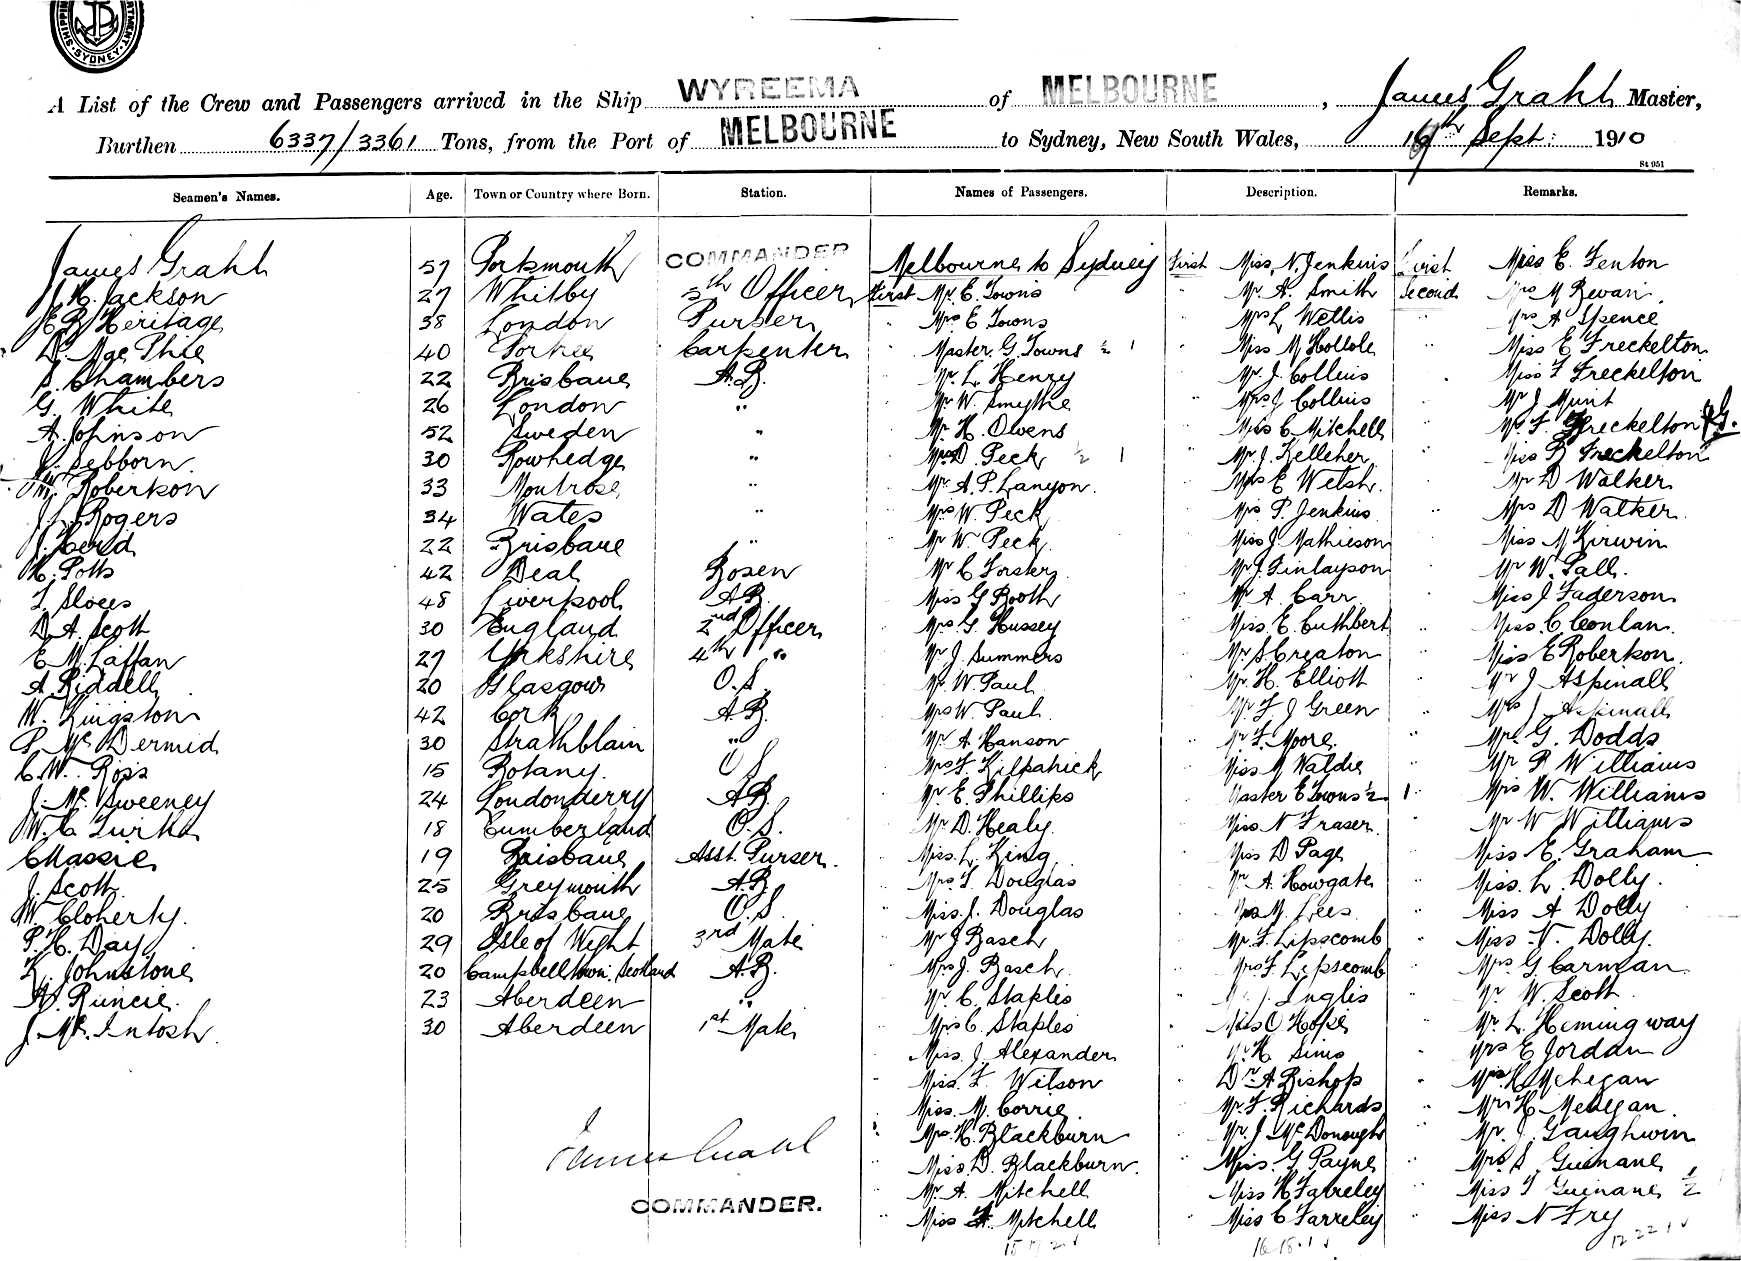 SHIPPING DEPARTMENT · SYDNEY ·
A List of the Crew and Passengers arrived in the Ship WYREEMA of MELBOURNE, James Grahl Master,
Burthen 6337/3361 Tons, from the Port of MELBOURNE to Sydney, New South Wales, 16th Sept: 1910
St 951
Seamen's Names. Age. Town or Country where Born. Station. Names of Passengers. Description. Remarks.
James Grahl 57 Portsmouth COMMANDER Melbourne to Sydney First Miss N. Jenkins Miss E. Fenton
Jackson 27 Whitby 5th Officer First Mr E. Towns Mr A. Smith Second Mrs M Bevan
E B Heritage 38 London Purser " Mrs E Towns Mrs L Wellis Mrs A Spence
40 Carpenter " Master G. Towns ½ 1 Miss M " Miss E Freckelton
S. Chambers 22 Brisbane A.B. " Mr L Henry Mr J. Collins Miss F Freckelton
G. White 26 London " " Mr W. Smythe " Mrs J Collins " Mr J Munt
A. Johnson 52 Sweden " " Mr H. Owens Miss C Mitchell " Mr F Freckelton JG.
J. Sebborn 30 Rowhedge " " Mrs D. Peck ½ 1 Mr J. Kelleher Miss B Freckelton
Robertson 33 Montrose " " Mr A. P. Lanyon. Mrs E Welsh. " Mr D Walker
J L Rogers 34 Wales " " Mrs W. Peck Mrs P. Jenkins " Mrs D Walker
J. Herd 22 Brisbane " " Mr W. Peck Miss J. Mathieson Miss M Kirwin
H. Potts 42 Deal Bosen " Mr C Forster Mr J. Finlayson Mr W. Pall.
T. Sloees 48 Liverpool A.B. " Miss G Booth Mr A Carr Miss J. Faderson
D. A. Scott 30 England 2nd Officer " Mrs G. Hussey " Miss E. Cuthbert " Miss C Conlan.
E. M. Laffan 27 Yorkshire 4th " " Mr J. Summers " Mr S. Creaton Miss E Robertson.
A Riddell 20 Glasgow O.S. " Mr W. Paul " Mr H. Elliott " Mr J Aspinall
W. Kingston 42 Cork A.B. " Mrs W. Paul Mr F J Green " Mrs J Aspinall
P. McDermid 30 Strathblain " " Mr A Hanson " Mr F. Moore " Mr G. Dodds
C. W. Ross 15 Botany. O S " Mrs F. Kilpatrick Miss M Waldie " Mr P Williams
J. McSweeney 24 Londonderry A.B. " Mr E. Phillips Master E Towns ½ 1 Mrs W. Williams
W. C. 18 Cumberland O.S. " Mr D. Healy. Miss N Fraser " Mr W Williams
C Massie 19 Brisbane Asst. Purser " Miss L. King Miss D Page Miss E. Graham
J. Scott 25 Greymouth A.B. " Mrs F. Douglas Mr A. Howgate " Miss L. Dolly.
W. Cloherty. 20 Brisbane O.S. " Miss J. Douglas Mrs M. Lees " Miss A Dolly
P. H. Day 29 Isle of Wight 3rd Mate " Mr J Basch " Mr F. Lipscomb " Miss N. Dolly.
Johnstone 20 Campbelltown. Scotland A.B. " Mrs J. Basch Mrs F. Lipscomb " Mrs G. Carman
Runcie. 23 Aberdeen " " Mr C. Staples Inglis " Mr W. Scott
J. McIntosh 30 Aberdeen 1st Mate " Mrs C. Staples Miss O Hope " Mr L. Hemingway
Miss J. Alexander Mr H Sims Mrs E Jordan
Miss F. Wilson Dr A Bishop Mr H Mehegan
Miss M. Corrie Mr F. Richards " Mrs H Mehegan
Mrs H. Blackburn Mr J McDonough " Mr J. Gaughwin
James Grahl Miss D. Blackburn. Miss. G Payne " Mrs S. Guinane
COMMANDER. " Mr A. Mitchell " Miss K Farreley " Miss T Guinane ½
" Miss Mitchell " Miss C Farreley " Miss N Fry